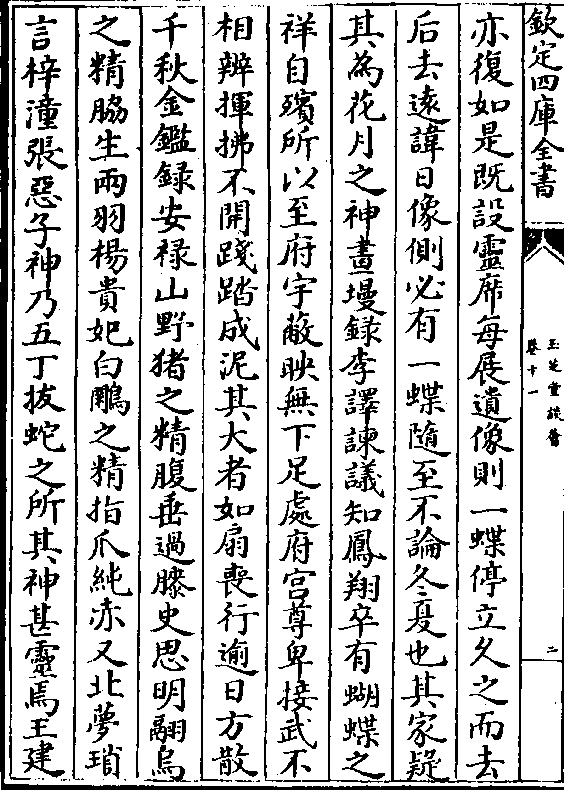 欽定四庫全書
玉芝堂談薈
卷十一
二
亦復如是既設靈席每展遺像則一蝶停立久之而去
后去遠諱日像側必有一蝶隨至不論冬夏也其家疑
其為花月之神畫墁錄李譯諫議知鳳翔卒有蝴蝶之
祥自殯所以至府宇蔽映無下足處府宫尊卑接武不
相辨揮拂不開踐踏成泥其大者如扇喪行逾日方散
千秋金鑑録安禄山野猪之精腹垂過膝史思明翮烏
之精脇生兩羽楊貴妃白鵰之精指爪純赤又北夢瑣
言梓潼張惡子神乃五丁拔蛇之所其神甚靈焉王建